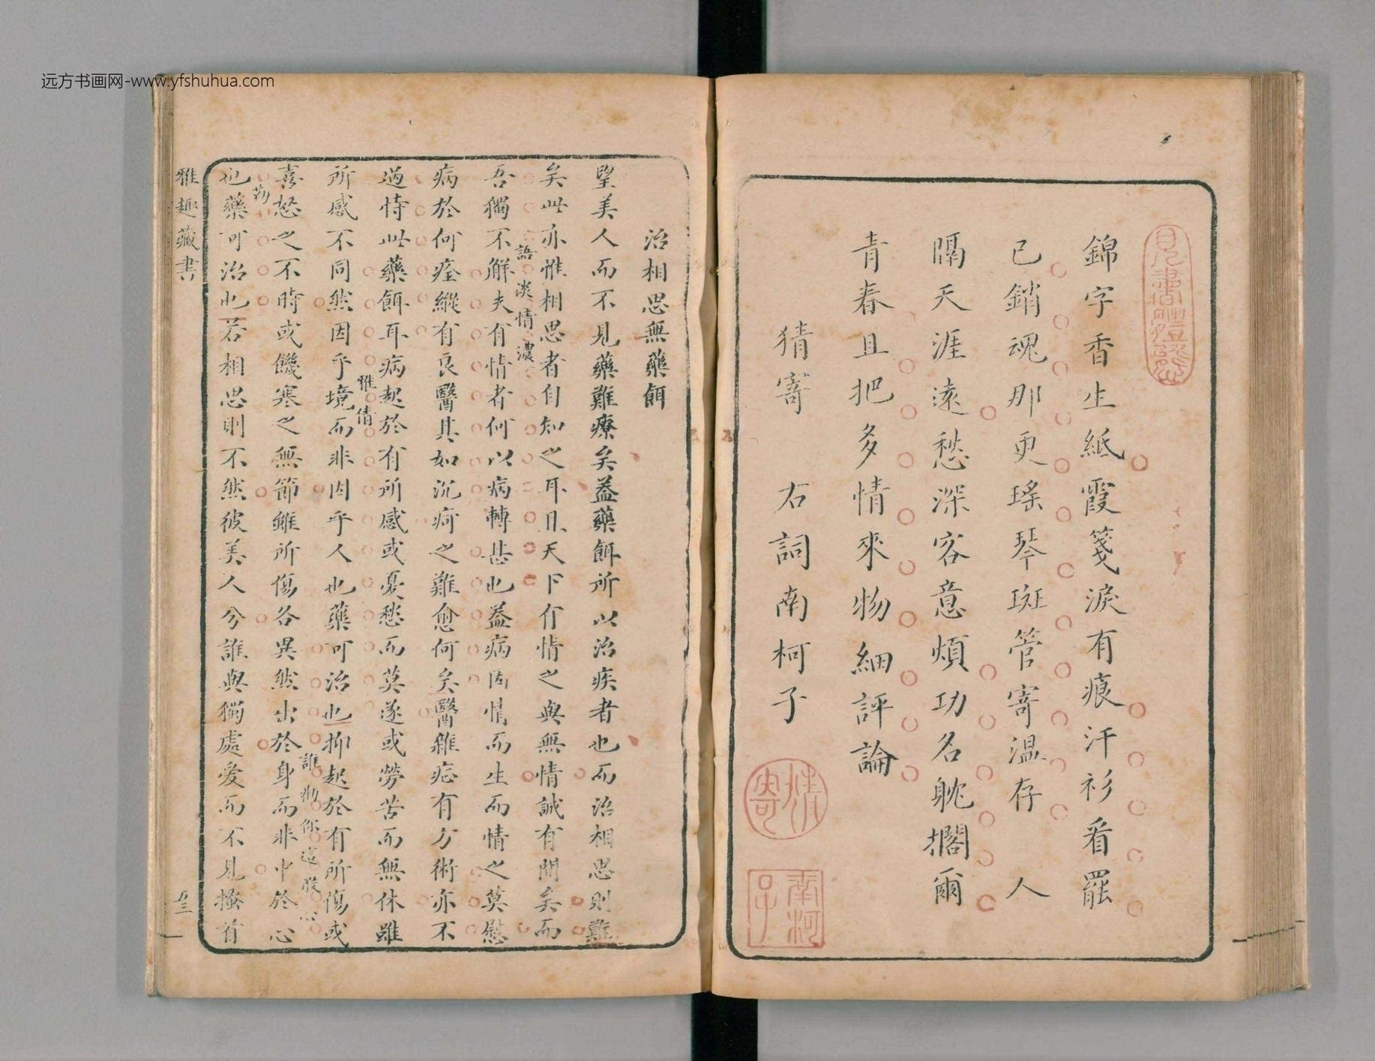 远方书画网-www.yfshuhua.com
錦字香生紙霞箋淚有痕汗衫看罷
已銷魂那更瑤琴斑管寄溫存 人
隔天涯遠愁深客意煩功名躭擱爾
青春且把多情來物細評論
猜寄 右詞南柯子
猜寄
南柯子
治相思無藥餌
望美人而不見藥難療矣蓋藥餌所以治疾者也而治相思則難
矣此亦惟相思者自知之耳且天下有情之與無情誠有間矣而
語淡情濃
吾獨不解夫有情者何以病轉甚也蓋病因情而生而情之莫慰
病於何痊縱有良醫其如沉疴之難愈何矣醫雖極有方術亦不
過恃此藥餌耳病起於有所感或憂愁而莫遂或勞苦而無休雖
惟情
所感不同然因乎境而非因乎人也藥可治也抑起於有所傷或
誰勸你這般
喜怒之不時或饑寒之無節雖所傷各異然出於身而非中於心
也藥可治也若相思則不然彼美人兮誰與獨處愛而不見搔首
雅趣藏書
五三